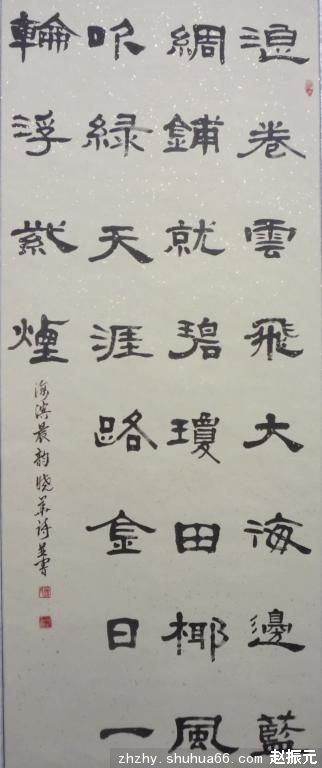 浪卷雲飛大海邊藍
綢鋪就碧瓊田椰風
吹緑天涯路金日一
輪浮紫煙
海濱晨韵晓華詩並書
zhzhy.shuhua66.com 赵振元